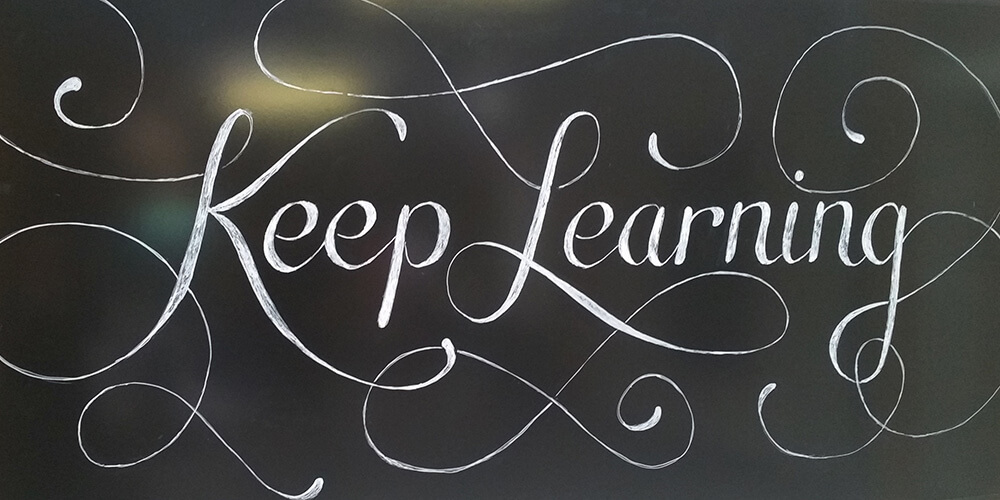 Keep Learning